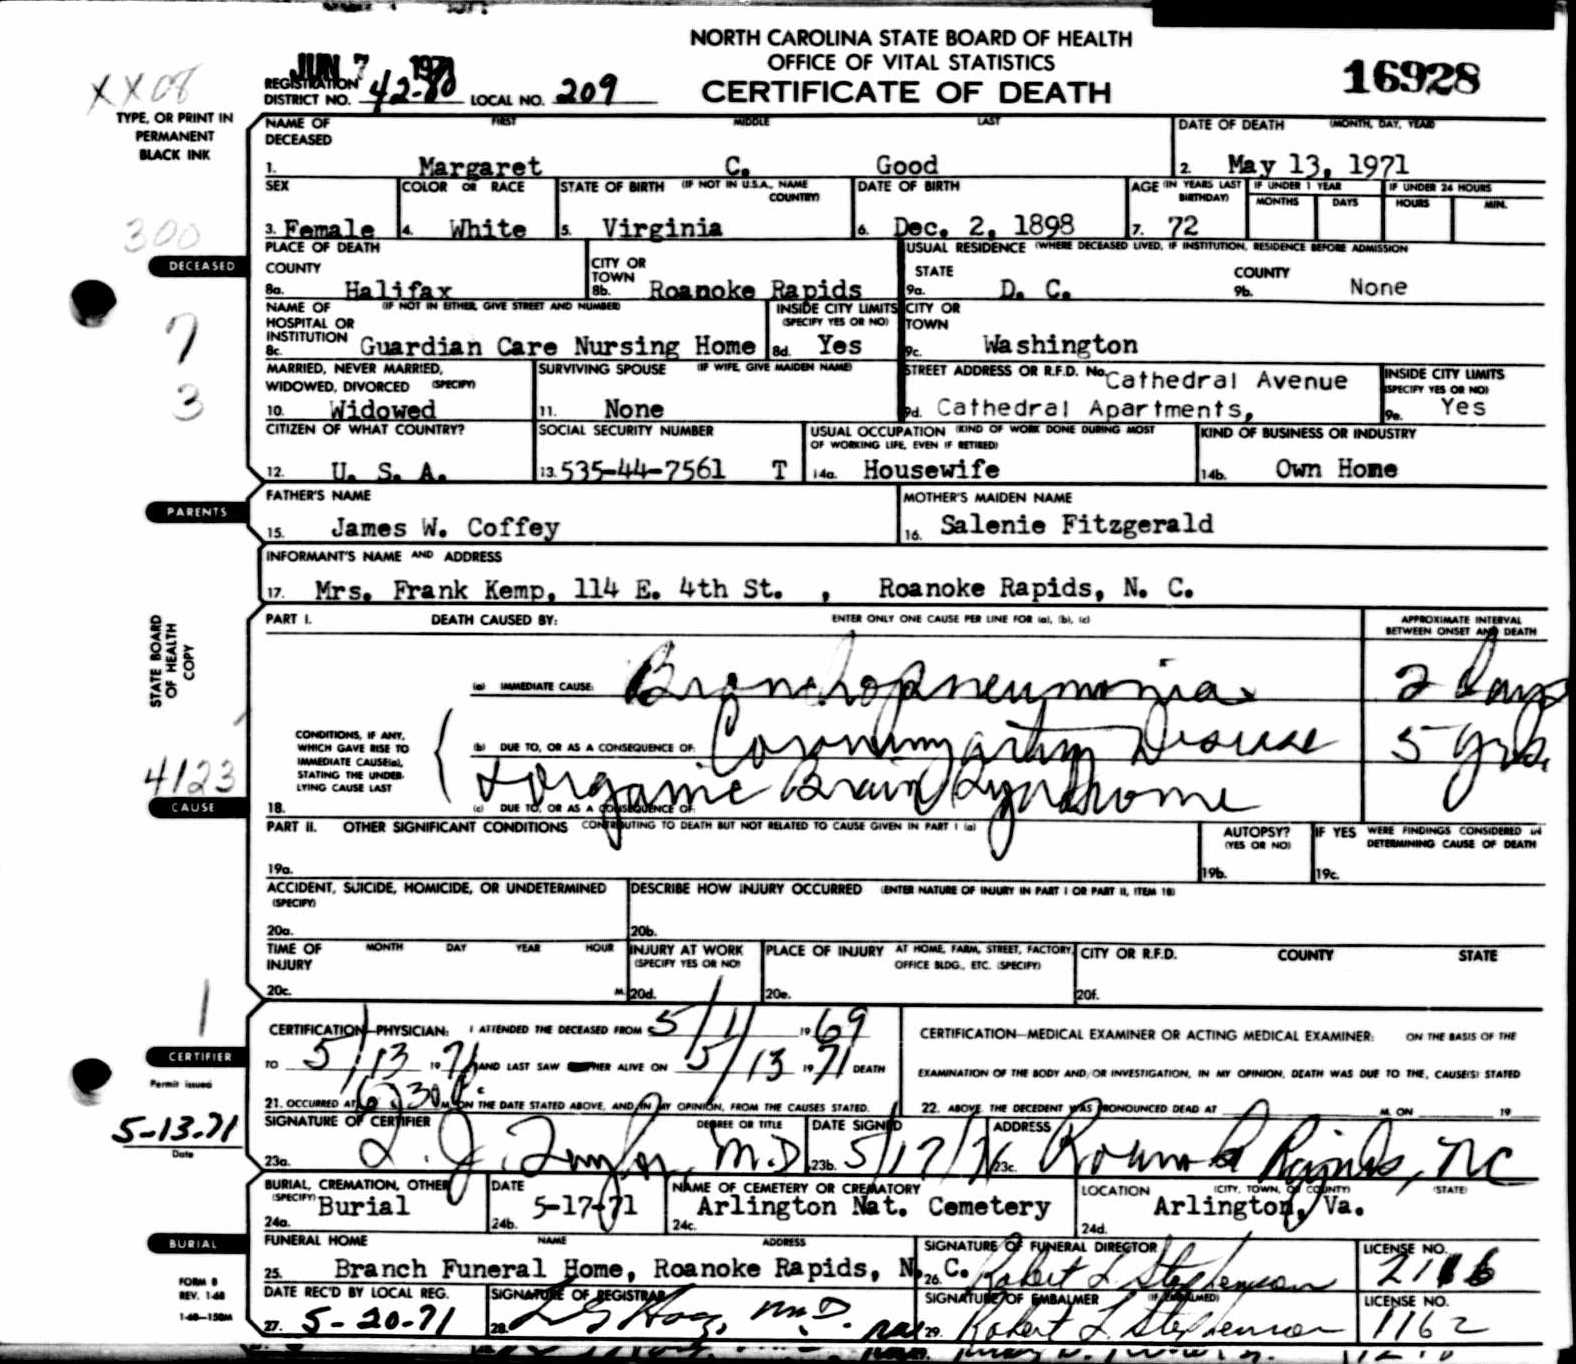 NORTH CAROLINA STATE BOARD OF HEALTH
OFFICE OF VITAL STATISTICS
CERTIFICATE OF DEATH
16928
JUN 7 1971
XX08
REGISTRATION DISTRICT NO. 42-80 LOCAL NO. 209
TYPE, OR PRINT IN
PERMANENT
BLACK INK
NAME OF DECEASED FIRST MIDDLE LAST
1. Margaret C. Good
DATE OF DEATH (MONTH, DAY, YEAR)
2. May 13, 1971
SEX
3. Female
COLOR OR RACE
4. White
STATE OF BIRTH (IF NOT IN U.S.A., NAME COUNTRY)
5. Virginia
DATE OF BIRTH
6. Dec. 2, 1898
AGE (IN YEARS LAST BIRTHDAY)
7. 72
IF UNDER 1 YEAR
MONTHS DAYS
IF UNDER 24 HOURS
HOURS MIN.
300
DECEASED
7
3
PLACE OF DEATH
COUNTY
8a. Halifax
CITY OR TOWN
8b. Roanoke Rapids
USUAL RESIDENCE (WHERE DECEASED LIVED, IF INSTITUTION, RESIDENCE BEFORE ADMISSION
STATE
9a. D. C.
COUNTY
9b. None
NAME OF HOSPITAL OR INSTITUTION (IF NOT IN EITHER, GIVE STREET AND NUMBER)
8c. Guardian Care Nursing Home
INSIDE CITY LIMITS (SPECIFY YES OR NO)
8d. Yes
CITY OR TOWN
9c. Washington
MARRIED, NEVER MARRIED, WIDOWED, DIVORCED (SPECIFY)
10. Widowed
SURVIVING SPOUSE (IF WIFE, GIVE MAIDEN NAME)
11. None
STREET ADDRESS OR R.F.D. No. Cathedral Avenue
9d. Cathedral Apartments,
INSIDE CITY LIMITS (SPECIFY YES OR NO)
9e. Yes
CITIZEN OF WHAT COUNTRY?
12. U. S. A.
SOCIAL SECURITY NUMBER
13. 535-44-7561 T
USUAL OCCUPATION (KIND OF WORK DONE DURING MOST OF WORKING LIFE, EVEN IF RETIRED)
14a. Housewife
KIND OF BUSINESS OR INDUSTRY
14b. Own Home
PARENTS
FATHER'S NAME
15. James W. Coffey
MOTHER'S MAIDEN NAME
16. Salenie Fitzgerald
INFORMANT'S NAME AND ADDRESS
17. Mrs. Frank Kemp, 114 E. 4th St. , Roanoke Rapids, N. C.
STATE BOARD
OF HEALTH
COPY
PART I. DEATH CAUSED BY: ENTER ONLY ONE CAUSE PER LINE FOR (a), (b), (c)
APPROXIMATE INTERVAL BETWEEN ONSET AND DEATH
(a) IMMEDIATE CAUSE: Bronchopneumonia 2 Days
CONDITIONS, IF ANY, WHICH GAVE RISE TO IMMEDIATE CAUSE(a), STATING THE UNDERLYING CAUSE LAST
(b) DUE TO, OR AS A CONSEQUENCE OF: Coronary artery Disease 5 yrs.
+ organic Brain Syndrome
18. (c) DUE TO, OR AS A CONSEQUENCE OF:
4123
CAUSE
PART II. OTHER SIGNIFICANT CONDITIONS CONTRIBUTING TO DEATH BUT NOT RELATED TO CAUSE GIVEN IN PART I (a)
19a.
AUTOPSY? (YES OR NO)
19b.
IF YES WERE FINDINGS CONSIDERED IN DETERMINING CAUSE OF DEATH
19c.
ACCIDENT, SUICIDE, HOMICIDE, OR UNDETERMINED (SPECIFY)
20a.
DESCRIBE HOW INJURY OCCURRED (ENTER NATURE OF INJURY IN PART I OR PART II, ITEM 18)
20b.
TIME OF INJURY MONTH DAY YEAR HOUR
20c. M.
INJURY AT WORK (SPECIFY YES OR NO)
20d.
PLACE OF INJURY AT HOME, FARM, STREET, FACTORY, OFFICE BLDG., ETC. (SPECIFY)
20e.
CITY OR R.F.D. COUNTY STATE
20f.
1
CERTIFIER
CERTIFICATION—PHYSICIAN: I ATTENDED THE DECEASED FROM 5/1/ 1969
TO 5/13 1971 AND LAST SAW HER ALIVE ON 5/13 1971 DEATH
21. OCCURRED AT 6:30 M. ON THE DATE STATED ABOVE, AND, IN MY OPINION, FROM THE CAUSES STATED.
CERTIFICATION—MEDICAL EXAMINER OR ACTING MEDICAL EXAMINER: ON THE BASIS OF THE
EXAMINATION OF THE BODY AND/OR INVESTIGATION, IN MY OPINION, DEATH WAS DUE TO THE, CAUSE(S) STATED
22. ABOVE. THE DECEDENT WAS PRONOUNCED DEAD AT M. ON 19
Permit issued
5-13-71
Date
SIGNATURE OF CERTIFIER DEGREE OR TITLE
23a. L. J. Taylor, M.D
DATE SIGNED
23b. 5/17/71
ADDRESS
23c. Roanoke Rapids, NC
BURIAL, CREMATION, OTHER (SPECIFY)
24a. Burial
DATE
24b. 5-17-71
NAME OF CEMETERY OR CREMATORY
24c. Arlington Nat. Cemetery
LOCATION (CITY, TOWN, OR COUNTY) (STATE)
24d. Arlington, Va.
BURIAL
FUNERAL HOME NAME ADDRESS
25. Branch Funeral Home, Roanoke Rapids, N. C.
SIGNATURE OF FUNERAL DIRECTOR
26. Robert L Stephenson
LICENSE NO.
FORM 8
REV. 1-68
1-68—150M
DATE REC'D BY LOCAL REG.
27. 5-20-71
SIGNATURE OF REGISTRAR
28. M.D.
SIGNATURE OF EMBALMER (IF EMBALMED)
29. Robert L Stephenson
LICENSE NO.
1162